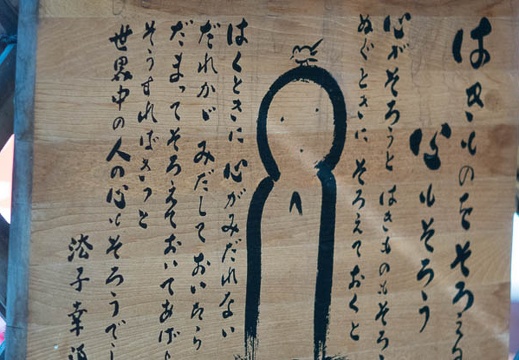 はきものをそろえ
心もそろう
心がそろうと はきものもそろう
ぬぐときに そろえておくと
はくときに 心がみだれない
だれかが みだして おいたら
だまって そろえて おいて あげ
そうすれば きっと
世界中の 人の 心も そろうでし
法子 幸